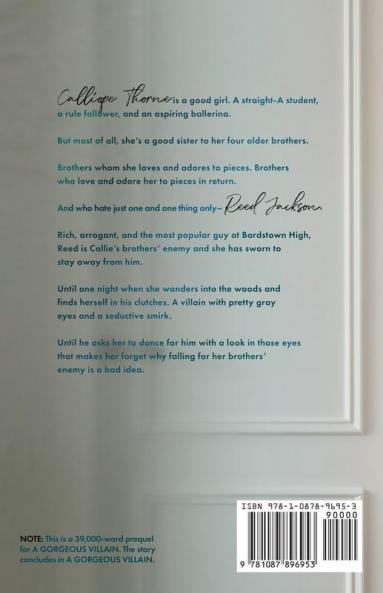 Calliope Thorne is a good girl. A straight-A student,
a rule follower, and an aspiring ballerina.
But most of all, she's a good sister to her four older brothers.
Brothers whom she loves and adores to pieces. Brothers
who love and adore her to pieces in return.
And who hate just one and one thing only– Reed Jackson.
Rich, arrogant, and the most popular guy at Bardstown High,
Reed is Callie's brothers' enemy and she has sworn to
stay away from him.
Until one night when she wanders into the woods and
finds herself in his clutches. A villain with pretty gray
eyes and a seductive smirk.
Until he asks her to dance for him with a look in those eyes
that makes her forget why falling for her brothers'
enemy is a bad idea.
NOTE: This is a 39,000-word prequel
for A GORGEOUS VILLAIN. The story
concludes in A GORGEOUS VILLAIN.
ISBN 978-1-0878-9695-3
90000
9 781087 896953